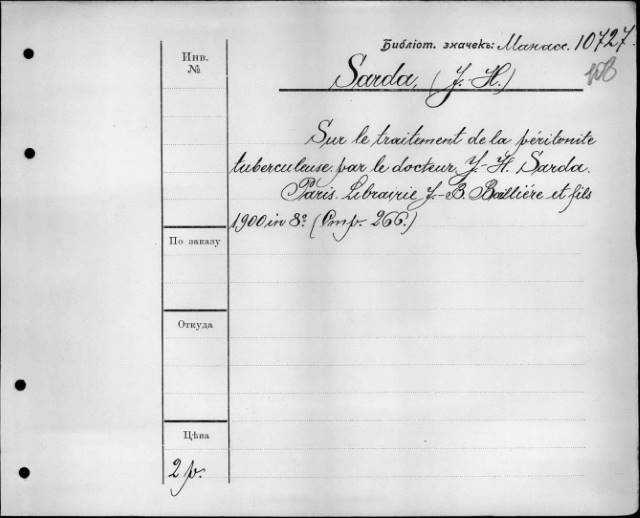 Библіот. значекъ: Манасс. 10727.
Инв.
№
Sarda, (J.-H.)
Sur le traitement de la péritonite
tuberculeuse par le docteur J.-H. Sarda.
Paris. Librairie J.-B. Baillière et fils
1900 in 8º (Стр. 266.)
По заказу
Откуда
Цѣна
2 р.